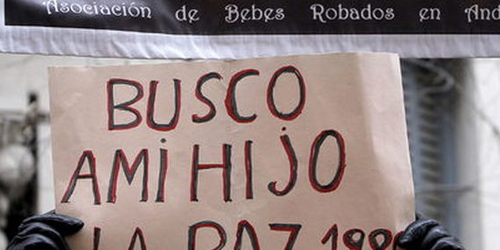 Asociación de Bebes Robados en And
BUSCO
A MI HIJO
LA PAZ